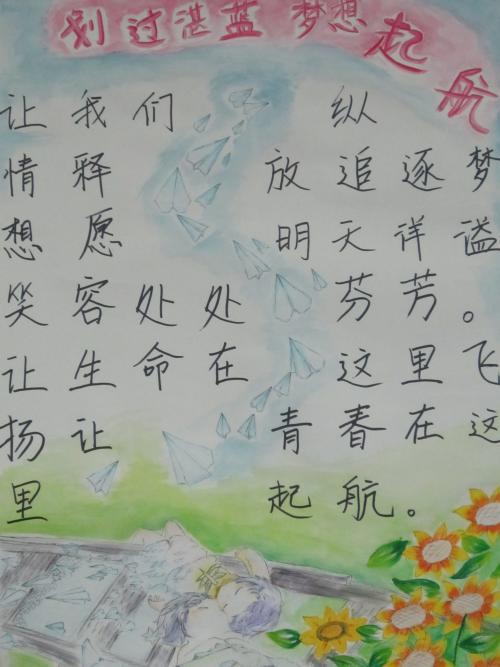 划过湛蓝 梦想起航
让我们 纵
情释 放追逐梦
想愿 明天详谥
笑容处处 芬芳。
让生命在 这里飞
扬让 青春在这
里 起航。